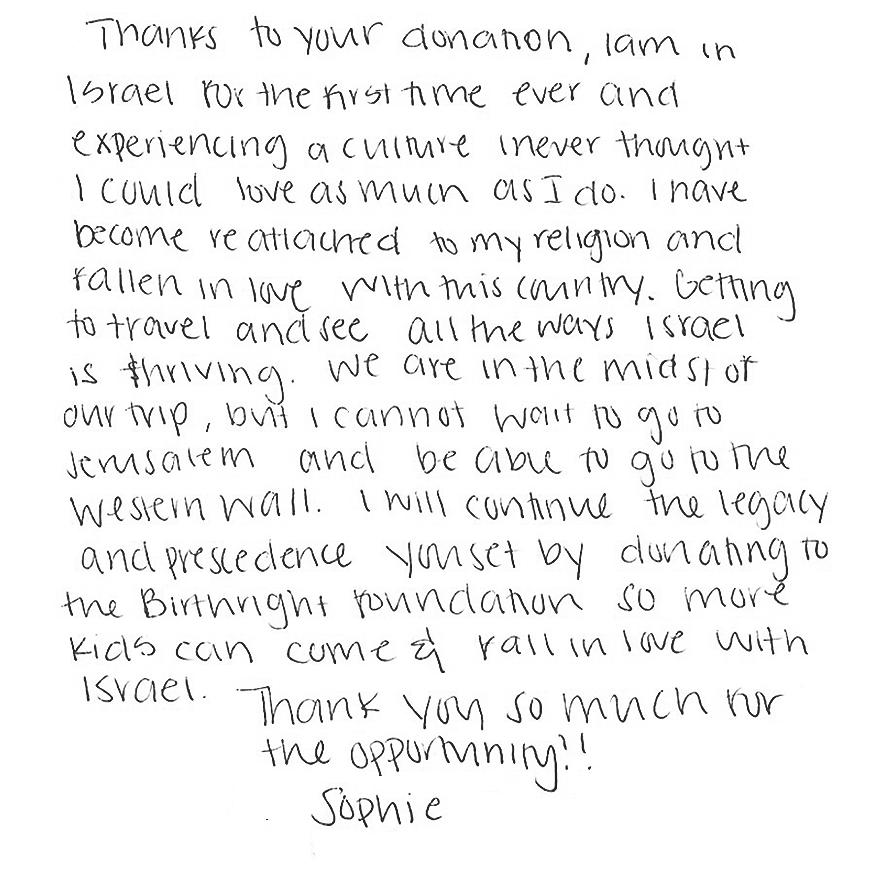 Thanks to your donation, I am in
Israel for the first time ever and
experiencing a culture I never thought
I could love as much as I do. I have
become reattached to my religion and
fallen in love with this country. Getting
to travel and see all the ways Israel
is thriving. We are in the midst of
our trip, but I cannot wait to go to
Jerusalem and be able to go to the
Western Wall. I will continue the legacy
and prescedence you set by donating to
the Birthright foundation so more
kids can come & fall in love with
Israel.
Thank you so much for
the opportunity!!
Sophie